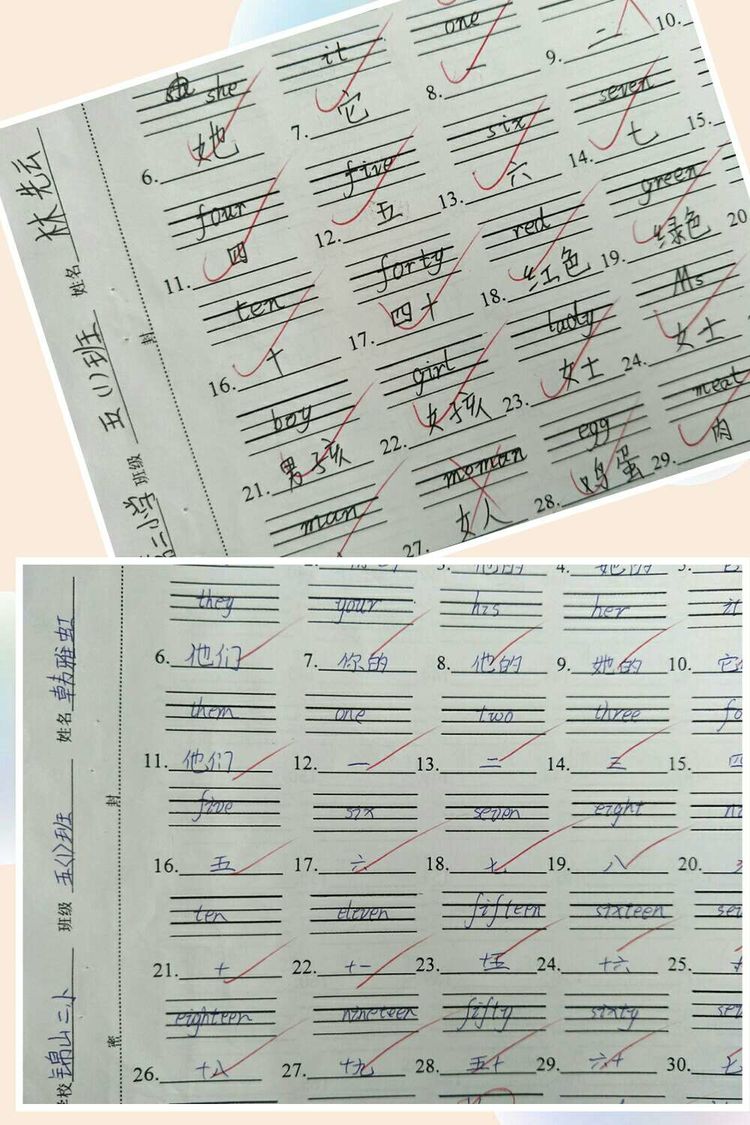 she it one
6. 她 7. 它 8. 一 9. 二 10.
four five six seven
11. 四 12. 五 13. 六 14. 七 15.
ten forty red green
16. 十 17. 四十 18. 红色 19. 绿色 20
boy girl lady Ms
21. 男孩 22. 女孩 23. 女士 24. 女士
man moman egg meat
27. 女人 28. 鸡蛋 29. 肉
小学 班级 五(1)班 姓名 林先云
封
they your his her it
6. 他们 7. 你的 8. 他的 9. 她的 10. 它
them one two three fo
11. 他们 12. 一 13. 二 14. 三 15. 四
five six seven eight ni
16. 五 17. 六 18. 七 19. 八 20.
ten eleven fifteen sixteen sev
21. 十 22. 十一 23. 十五 24. 十六 25.
eighteen nineteen fifty sixty sev
26. 十八 27. 十九 28. 五十 29. 六十 30. 七
学校 锦山二小 班级 五(1)班 姓名 韩雅虹
密 封